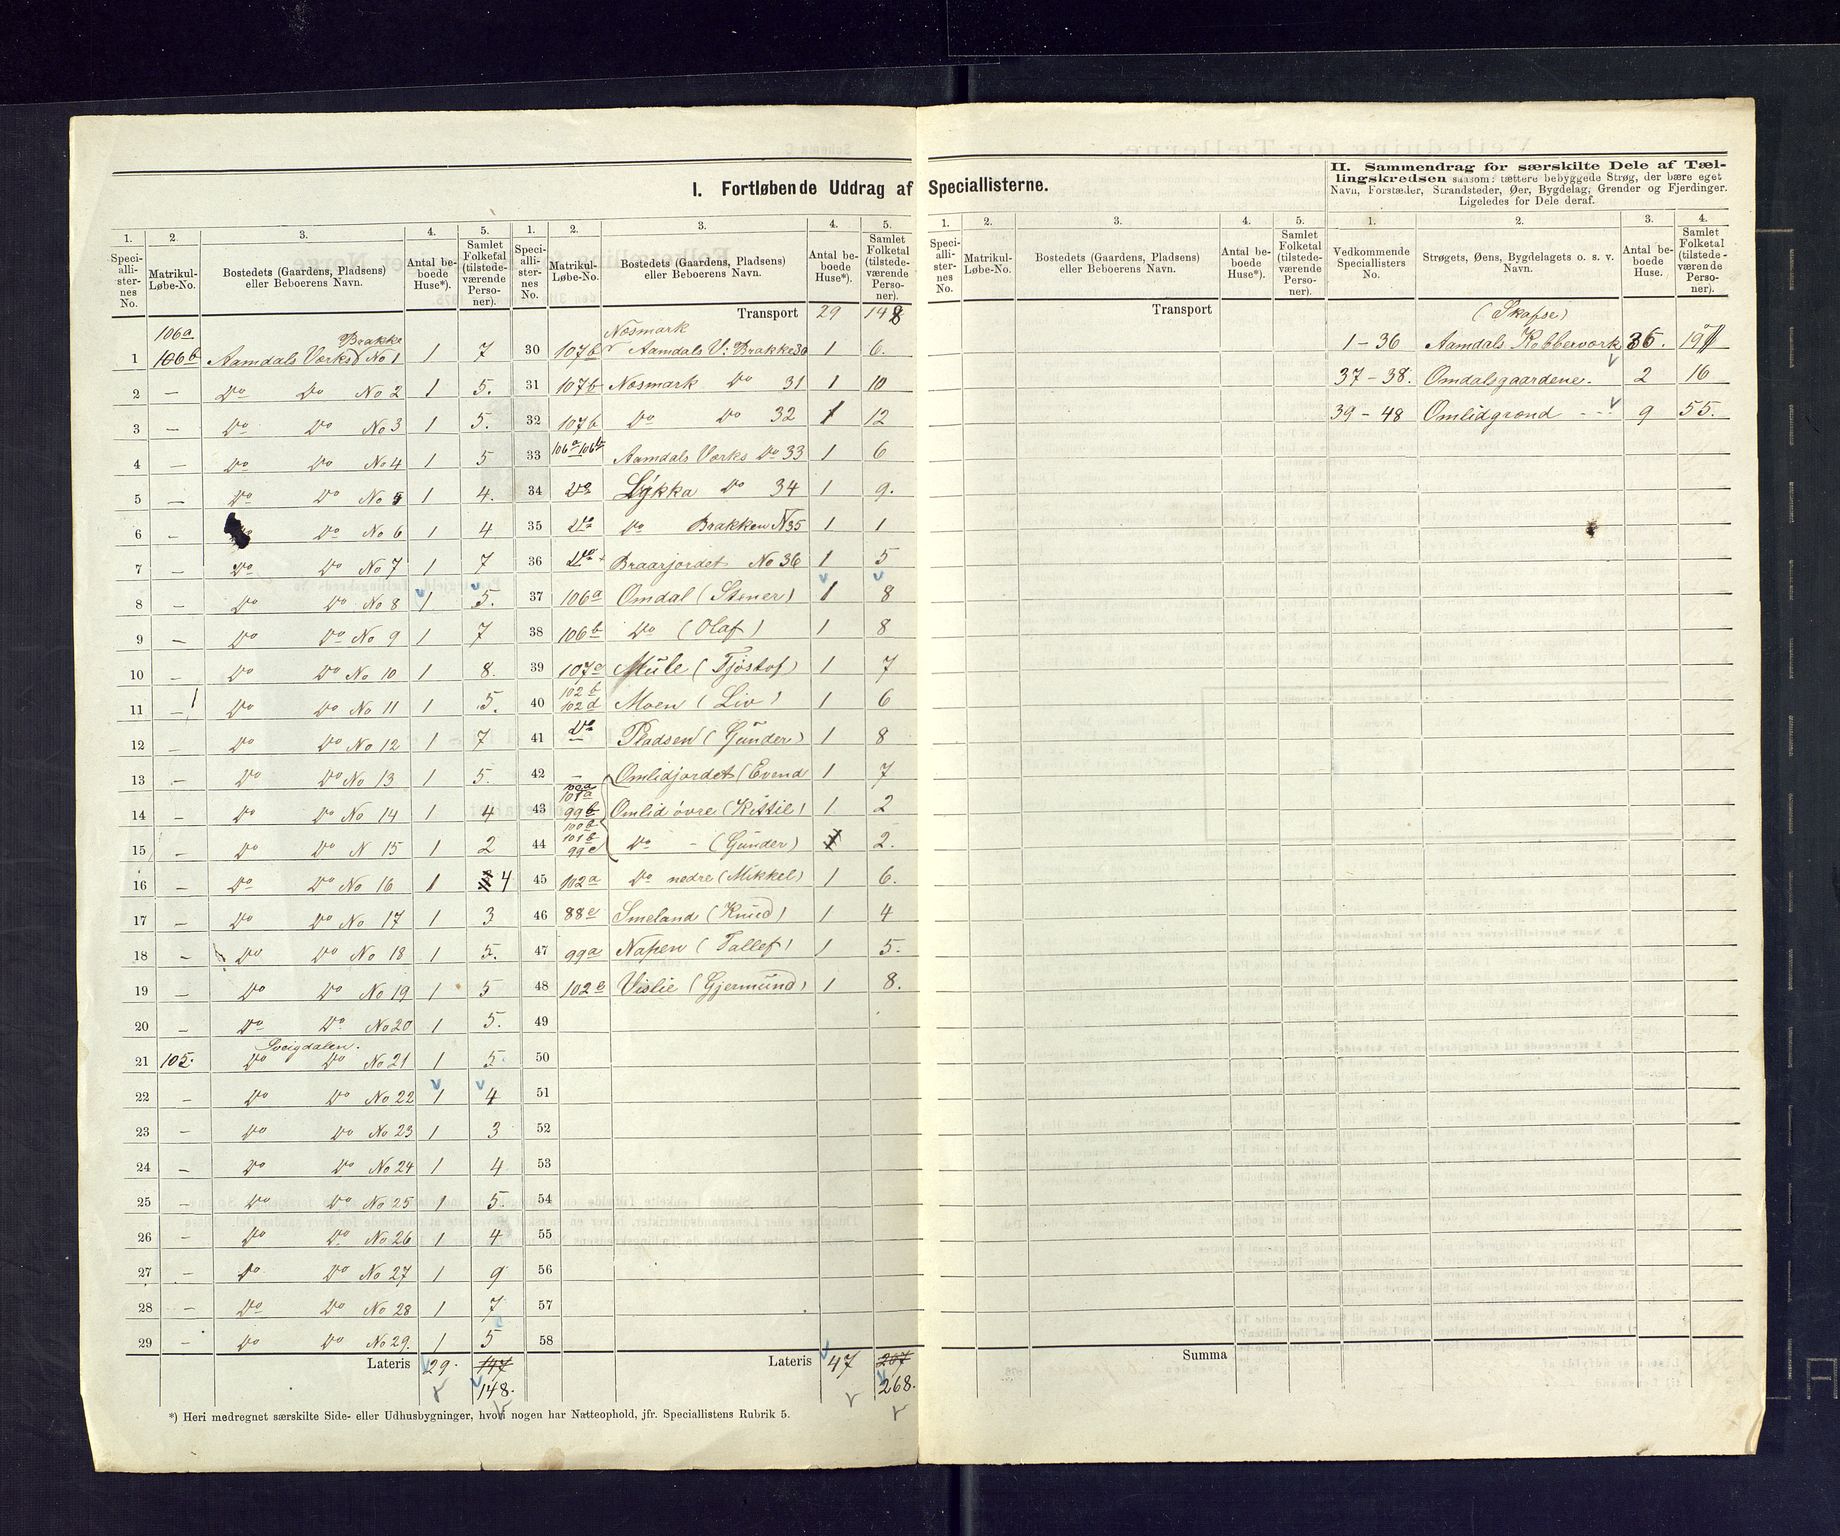 I. Fortløbende Uddrag af Speciallisterne.
II. Sammendrag for særskilte Dele af Tællingskredsen saasom: tættere bebyggede Strøg, der bære eget
Navn, Forstæder, Strandsteder, Øer, Bygdelag, Grender og Fjerdinger.
Ligeledes for Dele deraf.
1. 2. 3. 4. 5. 1. 2. 3. 4. 5. 1. 2. 3. 4. 5. 1. 2. 3. 4.
Speciallisternes No. Matrikul-Løbe-No. Bostedets (Gaardens, Pladsens) eller Beboerens Navn. Antal beboede Huse*). Samlet Folketal (tilstedeværende Personer).
Speciallisternes No. Matrikul-Løbe-No. Bostedets (Gaardens, Pladsens) eller Beboerens Navn. Antal beboede Huse*). Samlet Folketal (tilstedeværende Personer).
Speciallisternes No. Matrikul-Løbe-No. Bostedets (Gaardens, Pladsens) eller Beboerens Navn. Antal beboede Huse*). Samlet Folketal (tilstedeværende Personer).
Vedkommende Speciallisters No. Strøgets, Øens, Bygdelagets o. s. v. Navn. Antal beboede Huse. Samlet Folketal (tilstedeværende Personer).
106a
1 106b Aamdals Værks Brakke No 1 1 7
2 — Do Do No 2 1 5.
3 — Do Do No 3 1 5.
4 — Do Do No 4 1 5
5 — Do Do No 5 1 4.
6 — Do No 6 1 4
7 — Do Do No 7 1 7
8 — Do Do No 8 1 5.
9 — Do Do No 9 1 7
10 — Do Do No 10 1 8.
11 — Do Do No 11 1 5.
12 — Do Do No 12 1 7
13 — Do Do No 13 1 5.
14 — Do Do No 14 1 4
15 — Do Do N 15 1 2
16 — Do Do No 16 1 4
17 — Do Do No 17 1 3
18 — Do Do No 18 1 5.
19 — Do Do No 19 1 5
20 — Do Do No 20 1 5.
21 105. Sveigdalen. Do Do No 21 1 5.
22 — Do Do No 22 1 4
23 — Do Do No 23 1 3
24 — Do Do No 24 1 4
25 — Do Do No 25 1 5.
26 — Do Do No 26 1 4
27 — Do Do No 27 1 9
28 — Do Do No 28 1 7
29 — Do Do No 29. 1 5
Lateris 29. 147
148.
Transport 29 148
Næsmark
30 107b Aamdals V: Brakke 30 1 6.
31 107b Næsmark Do 31 1 10
32 107b Do Do 32 1 12
33 106a 106b Aamdals Værks Do 33 1 6
34 Do Lykka Do 34 1 9.
35 Do Do Brakken N 35 1 1
36 Do Braarjordet No 36 1 5
37 106a Omdal (Stener) 1 8
38 106b Do (Olaf) 1 8
39 107a Mule (Tjøstof) 1 7
40 102b 102d Moen (Liv) 1 6
41 Do Pladsen (Gunder) 1 8
42 — Omlidjordet (Evend 1 7
43 100a 101a 99b Omlid øvre (Kittil) 1 2
44 100b 101b 99c Do - (Gunder) 1 2.
45 102a Do nedre (Mikkel) 1 6.
46 88e Smeland (Knud) 1 4
47 99a Napen (Tallef) 1 5.
48 102e Vislie (Gjermund) 1 8.
49
50
51
52
53
54
55
56
57
58
Lateris 47 267
268.
Transport
Summa
(Skafse)
1 - 36 Aamdals Kobberværk 36.
37 - 38. Omdalsgaardene. 2 16
39 - 48 Omlidgrænd - - - 9 55.
*) Heri medregnet særskilte Side- eller Udhusbygninger, hvori nogen har Natteophold, jfr. Speciallistens Rubrik 5.